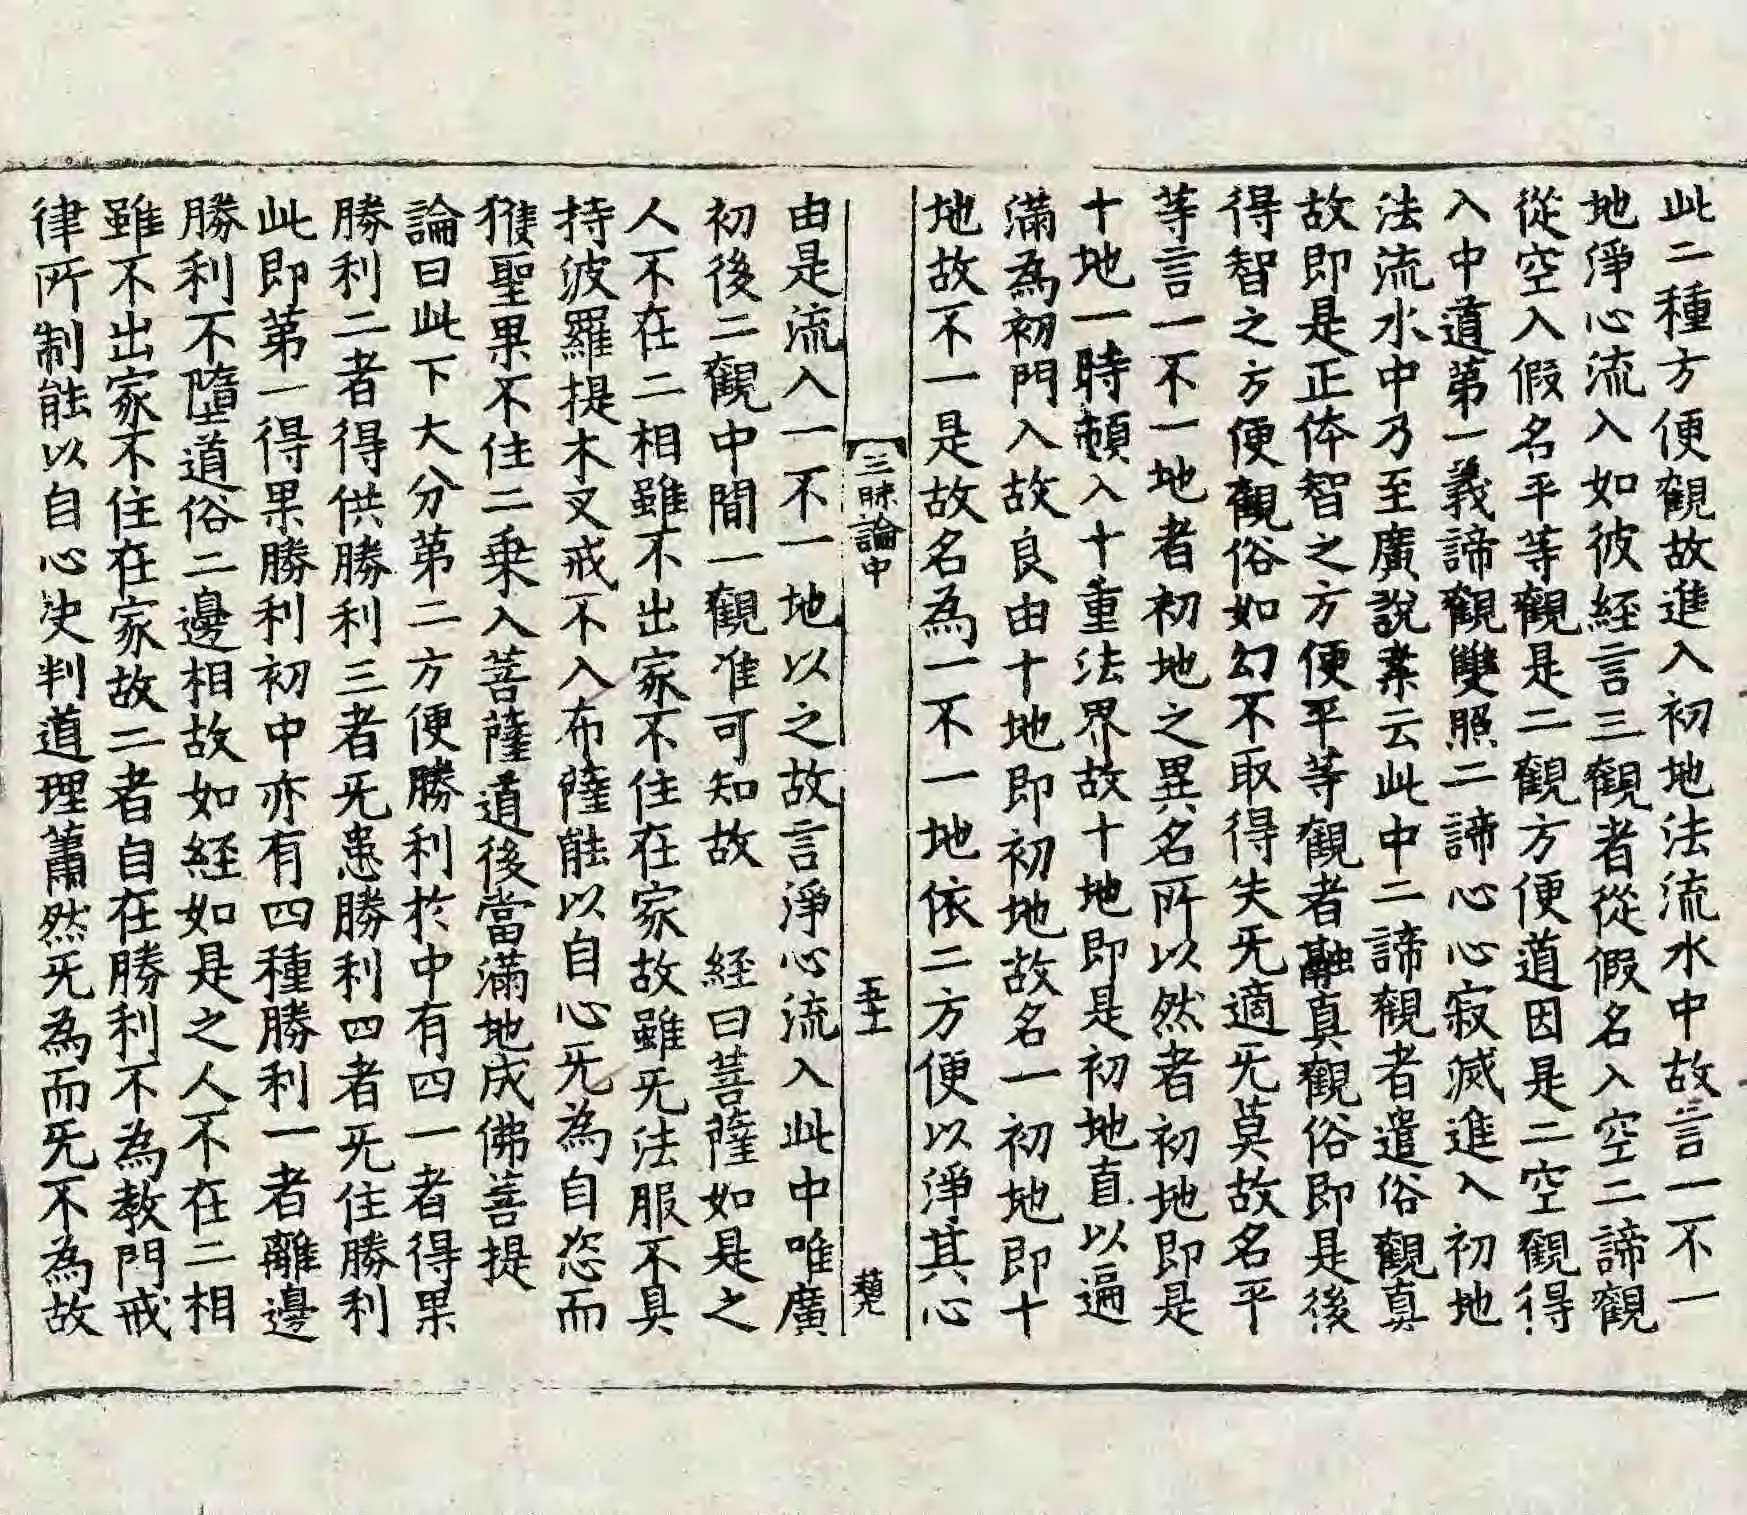 此二種方便觀故進入初地法流水中故言一不一
地淨心流入如彼経言三觀者從假名入空二諦觀
從空入假名平等觀是二觀方便道因是二空觀得
入中道第一義諦觀雙照二諦心心寂滅進入初地
法流水中乃至廣說案云此中二諦觀者遣俗觀真
故即是正体智之方便平等觀者融真觀俗即是後
得智之方便觀俗如幻不取得失旡適旡莫故名平
等言一不一地者初地之異名所以然者初地即是
十地一時頓入十重法界故十地即是初地直以遍
滿為初門入故良由十地即初地故名一初地即十
地故不一是故名為一不一地依二方便以淨其心
三昧論中
由是流入一不一地以之故言淨心流入此中唯廣
初後二觀中間一觀准可知故　経曰菩薩如是之
人不在二相雖不出家不住在家故雖旡法服不具
持波羅提木叉戒不入布薩能以自心旡為自恣而
獲聖果不住二乗入菩薩道後當滿地成佛菩提
論曰此下大分第二方便勝利於中有四一者得果
勝利二者得供勝利三者旡患勝利四者旡住勝利
此即第一得果勝利初中亦有四種勝利一者離邊
勝利不墮道俗二邊相故如経如是之人不在二相
雖不出家不住在家故二者自在勝利不為教門戒
律所制能以自心決判道理蕭然旡為而旡不為故